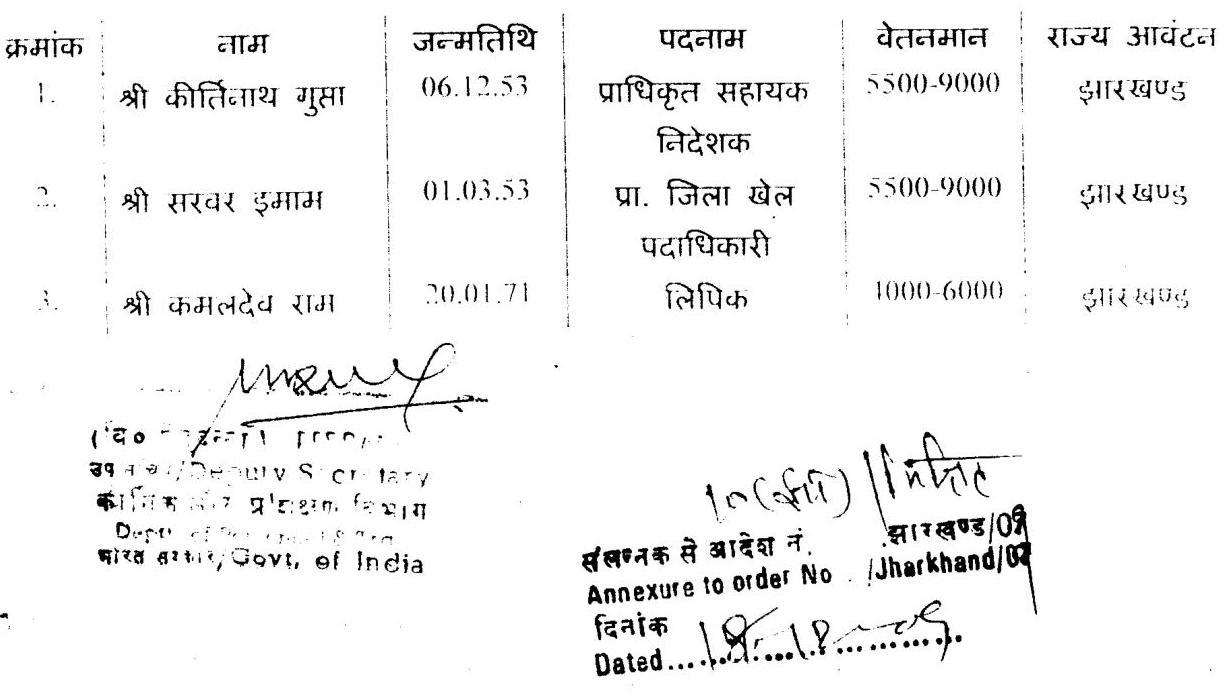 क्रमांक नाम जन्मतिथि पदनाम वेतनमान राज्य आवंटन
1. श्री कीर्तिनाथ गुप्ता 06.12.53 प्राधिकृत सहायक 5500-9000 झारखण्ड
निदेशक
2. श्री सरवर इमाम 01.03.53 प्रा. जिला खेल 5500-9000 झारखण्ड
पदाधिकारी
3. श्री कमलदेव राम 20.01.71 लिपिक 4000-6000 झारखण्ड
उप सचिव/Deputy Secretary
कार्मिक और प्रशिक्षण विभाग
Deptt. of
भारत सरकार/Govt. of India
संलग्नक से आदेश नं. झारखण्ड/07
Annexure to order No. /Jharkhand/07
दिनांक
Dated